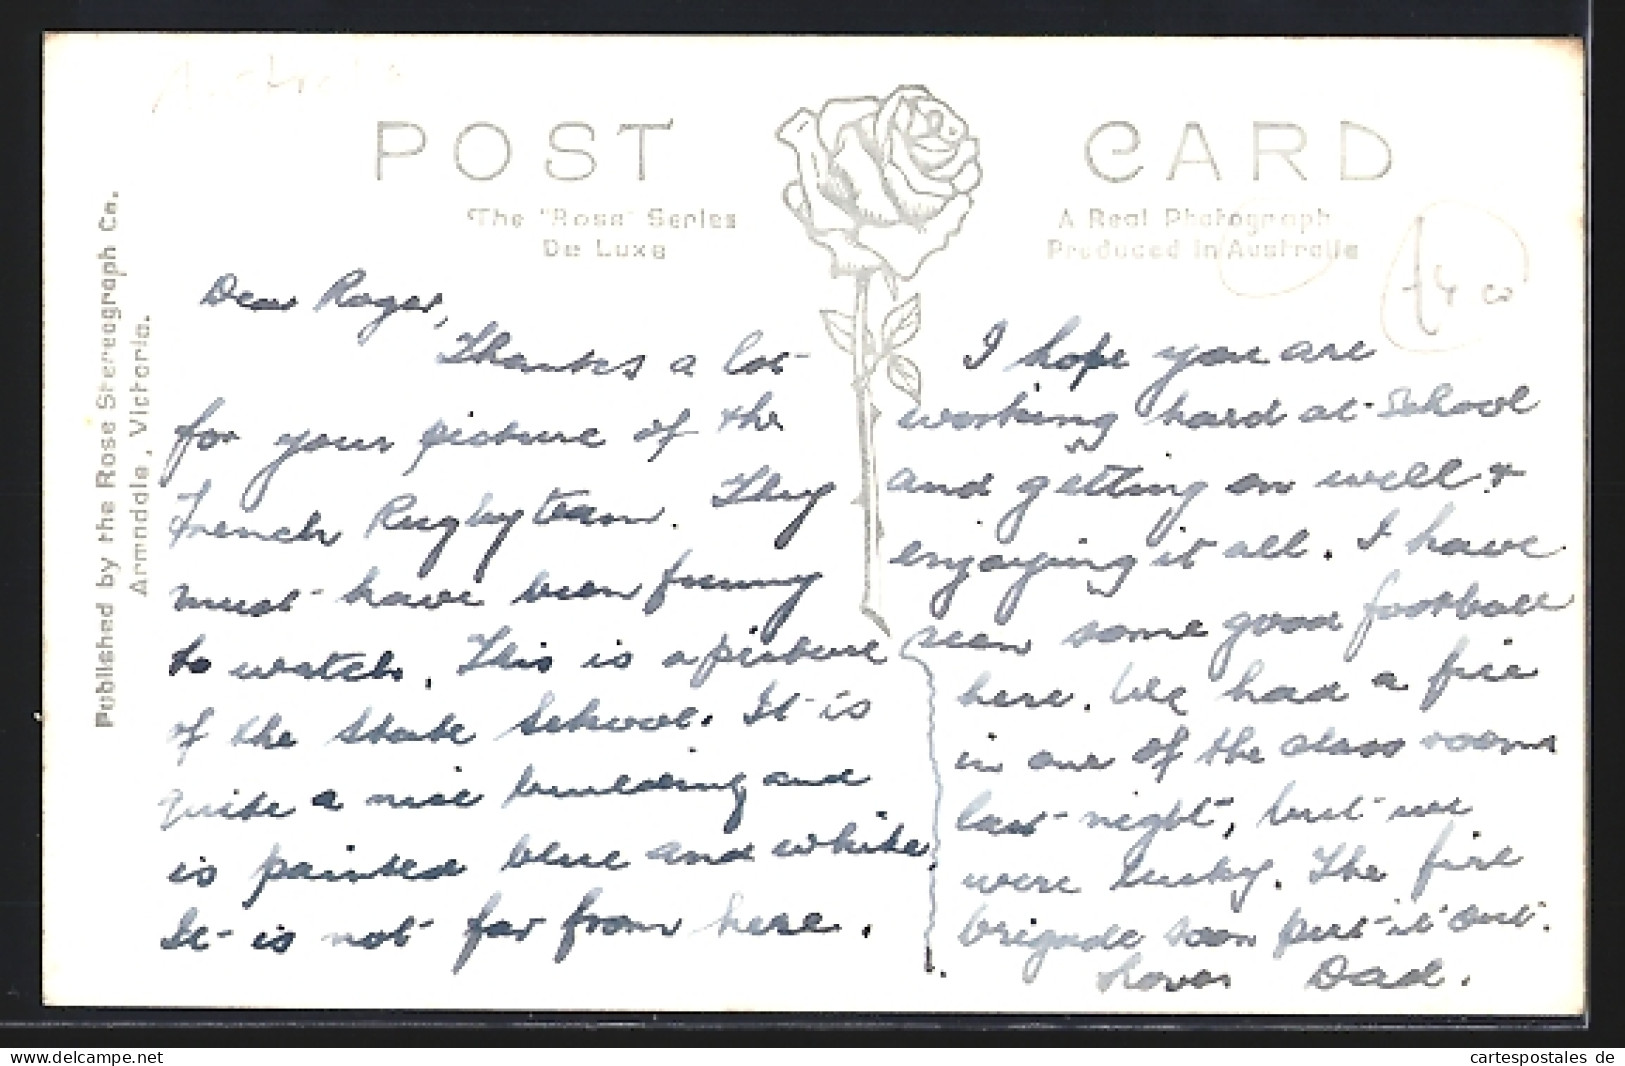 Australia
POST CARD
The "Rose" Series
De Luxe
A Real Photograph
Produced in Australia
Published by the Rose Stereograph Co.
Armadale, Victoria.
Dear Roger,
Thanks a lot
for your picture of the
French Rugby team. They
must have been funny
to watch. This is a picture
of the State School. It is
quite a nice building and
is painted blue and white.
It is not far from here.
I hope you are
working hard at School
and getting on well &
enjoying it all. I have
seen some good football
here. We had a fire
in one of the class rooms
last night, but we
were lucky. The fire
brigade soon put it out.
Love Dad.
www.delcampe.net
cartespostales_de